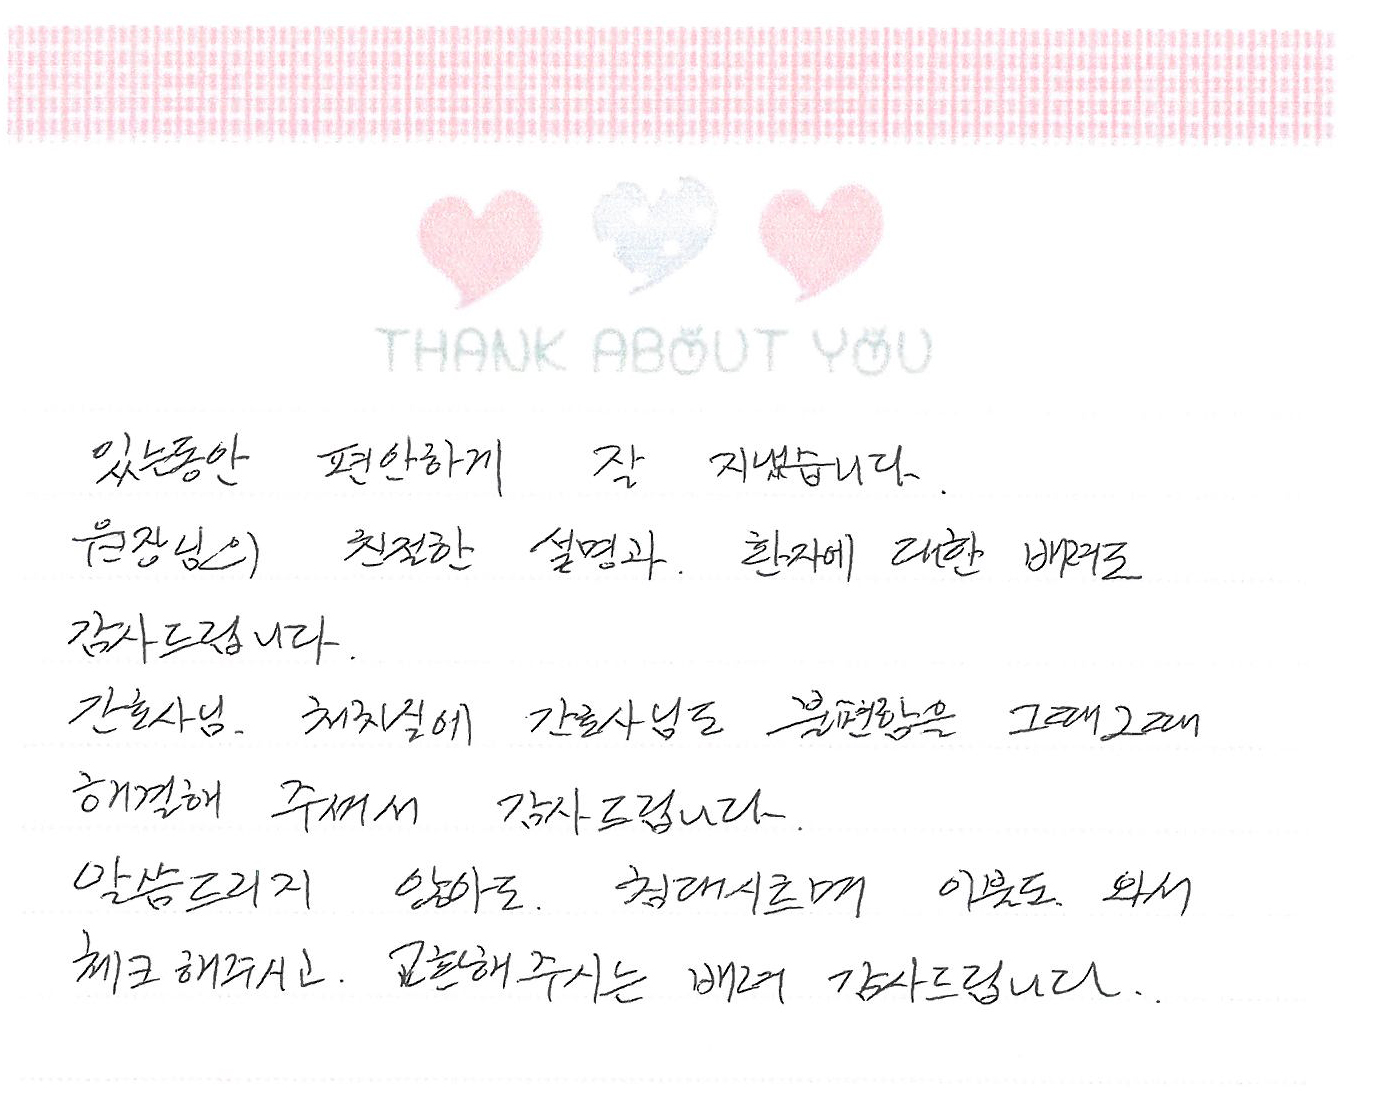 THANK ABOUT YOU
있는동안 편안하게 잘 지냈습니다.
원장님의 친절한 설명과. 환자에 대한 배려도
감사드립니다.
간호사님. 처치실에 간호사님도 불편함을 그때그때
해결해 주셔서 감사드립니다.
말씀드리지 않아도. 침대시트며 이불도. 와서
체크해주시고. 교환해주시는 배려 감사드립니다..